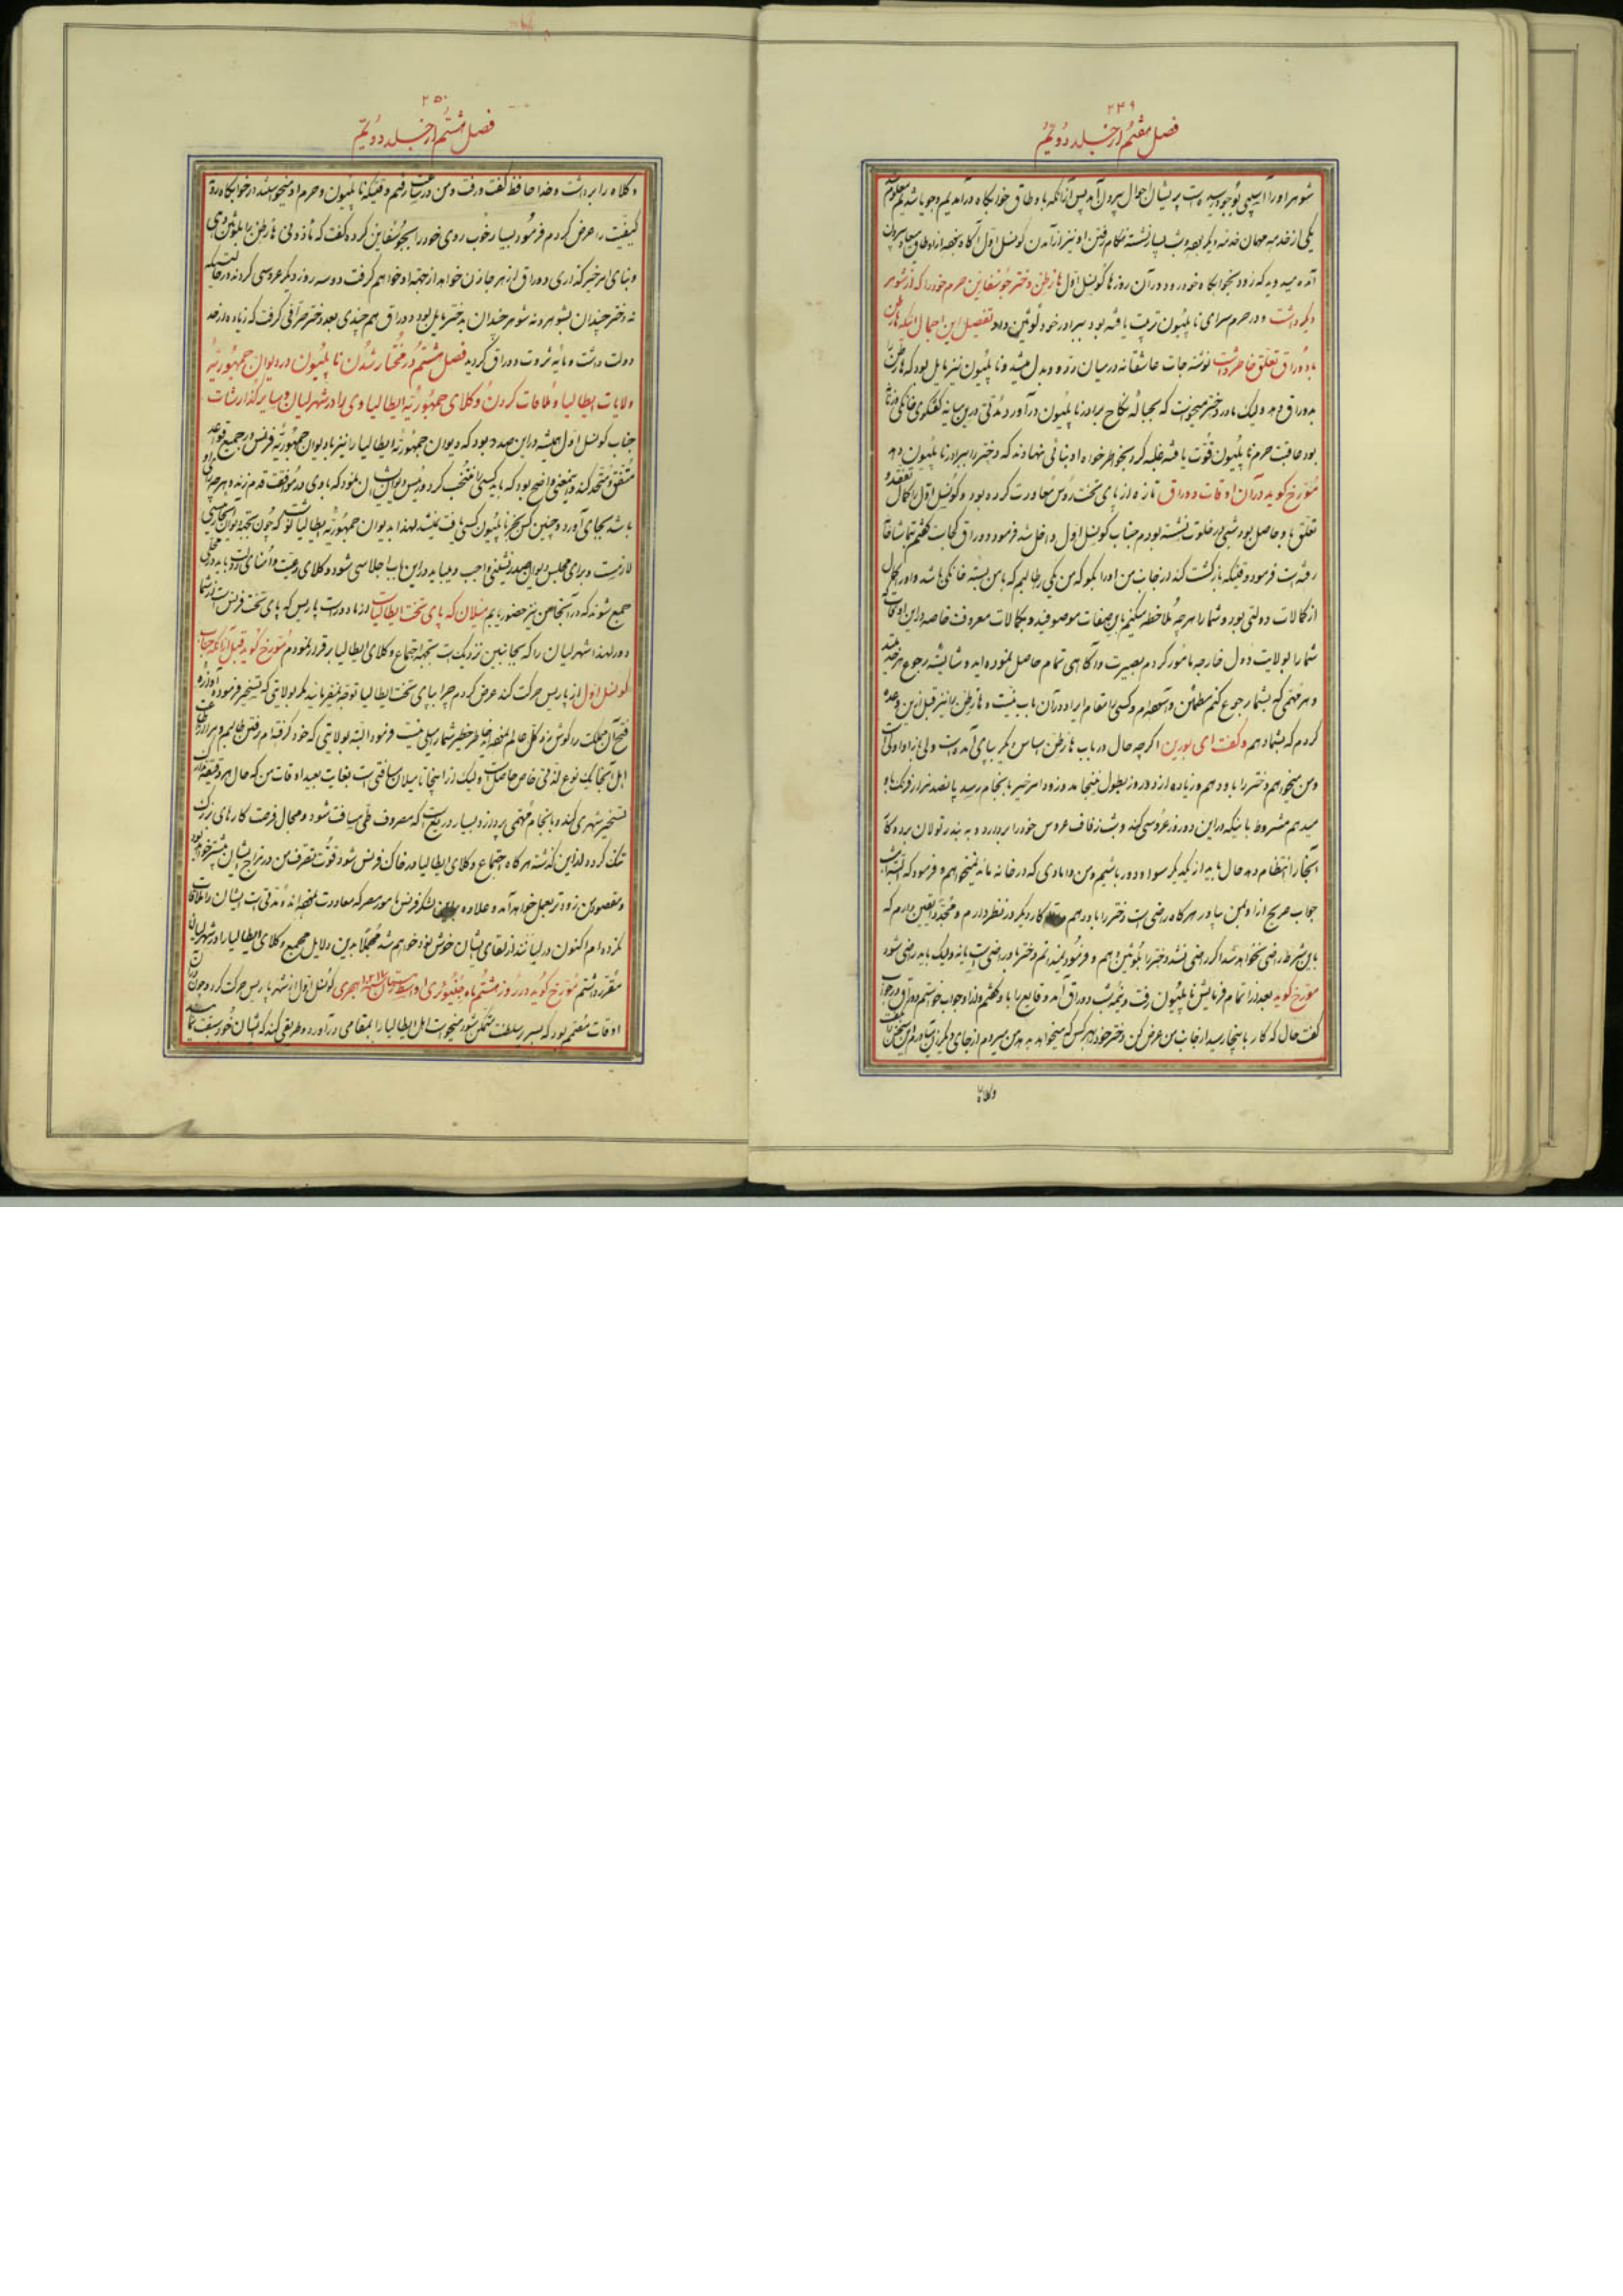 ۲۴۹
فصل هفتم از جلد دویم
شوهر او را آسیبی بوجود رسیده است پریشان احوال بیرون آمد پس از آنکه باوطاق خوابگاه درآمدیم وجویا شدیم معلوم شد
یکی از خدمه مهمان خدمه دیگر بوده و شب بسیار نشسته هنگام رفتن او نیز از آمدن کونسل اول آگاه نبوده از اوطاق بیرون
آمده میدوید که زود بخوابگاه خود رود در آن روزها کونسل اول هارطن دختر جوسفاین حرم خود را که از شوهر
دیگر داشت و در حرم سرای ناپلیون تربیت یافته بود ببرادر خود لوئین داد تفصیل این اجمال اینکه هارطن
با دوراق تعلق خاطر داشت نوشته جات عاشقانه در میان رد و بدل میشد و ناپلیون نیز مایل بود که هارطن را
بدوراق دهد ولیک مادر دختر میخواست که بحباله نکاح برادر ناپلیون درآورد مدتی در این میانه گفتگوی خانگی
بود عاقبت حرم ناپلیون قوت یافته غلبه کرد بخواطرخواه او بنائی نهادند که دختر را ببرادر ناپلیون دهد
مورخ گوید در آن اوقات دوراق تازه از پای تخت روس معاودت کرده بود و کونسل اول را کمال
تعلق باو حاصل بود شبی در خلوت نشسته بودم جناب کونسل اول داخل شد فرمود دوراق کجاست گفتم بتماشاخانه
رفته است فرمود وقتیکه بازگشت کند از جانب من او را بگو که من یکی را طالبم که با من بسته خانگی باشد و او را کمال
از کمالات دولتی بود و شما را هر چه ملاحظه میکنم باین صفات موصوفید و بکمالات معروفت خاصه در این اوقات
شما را بولایت دول خارجه مامور کردم بصیرت و آگاهی تمام حاصل نموده اید و شایسته رجوع هر خدمتید
و هر مهمی که بشما رجوع کنم مطمئن و آسوده ام و کسی را مقام ایراد در آن باب نیست و هارطن را نیز قبل از این وعده
کردم که بشما دهم و گفت ای بورین اگر چه حال در باب هارطن اساس دیگر بپای آمده است ولی باز اولی
و من میخواهم دختر را باو دهم و زیاده از دو روز بطول نینجامد و زود امر خیر بانجام رسد پانصد هزار فرنک باو
میدهم مشروط باینکه در این دو روز عروسی کند و شب زفاف عروس خود را بردارد و به بندر تولان برود تا
آنجا را انتظام دهد حال باید از یکدیگر سوا و دور باشیم و من دامادی که در خانه ماند نمیخواهم و فرمود که امشب
جواب صریح از او بمن بیاور هرگاه راضی است دختر را باو دهم کار دیگر در نظر دارم و مجددا یقین دارم که
باین شرط راضی نخواهد شد اگر راضی نشد دختر را بلوئین دهم و فرمود نمیدانم دختر باو راضی است یا نه ولیک باید راضی شود
مورخ گوید بعد از اتمام فرمایش ناپلیون رفت و نیمه شب دوراق آمد وقایع را باو گفتم و از او جواب خواستم دوراق در جواب
گفت حال که کار باینجا رسید از جانب من عرض کن دختر خود بهر کس که میخواهد بدهد من میروم از جای دیگر زن میاورم این سخن را گفت
وکلاه
۲۵۰
فصل هشتم از جلد دویم
وکلاه را برداشت و خدا حافظ گفت و رفت و من در ساعت رفتم وقتیکه ناپلیون و حرم او میخواستند در خوابگاه روند
کیفیت را عرض کردم فرمود بسیار خوب روی خود را بجوسفاین کرده گفت که ماذونی هارطن را بلوئین دهی
و بنای امر خیر گذاری دوراق از هر جا زن خواهد از جهة او خواهم گرفت دو سه روز دیگر عروسی کردند در حالتیکه
نه دختر چندان بشوهر و نه شوهر چندان بدختر مایل بود دوراق هم چندی بعد دختر صرافی گرفت که زیاده از حد
دولت داشت و مایه ثروت دوراق گردید فصل هشتم در مختار شدن ناپلیون در دیوان جمهوریه
ولایات ایطالیا و ملاقات کردن وکلای جمهوریه ایطالیا وی را در شهر لیان و سایر گذارشات
جناب کونسل اول همیشه در این صدد بود که دیوان جمهوریه ایطالیا را نیز با دیوان جمهوریه فرنس در جمیع قواعد
متفق و متحد کند و اینمعنی واضح بود که باید کسی را منتخب کرد و رئیس دیوان ایشان نمود که با وی در موافقت قدم زند و هر چه رای او
باشد بجای آورد و چنین کس بجز ناپلیون کسی یافت نمیشد لهذا بدیوان جمهوریه ایطالیا نوشت که چون بجهة دیوان آنجا رئیسی
لازمست و برای مجلس دیوان صدرنشینی واجب و میباید در این باب اجلاسی شود و وکلای رعیت و امنای دولت باید در محلی
جمع شوند که در آنجا من نیز حضور یابم میلان که پای تخت ایطالیاست از ما دور است پاریس که پای تخت فرنس است از شما
دور لهذا شهر لیان را که بجانبین نزدیک است بجهة اجتماع وکلای ایطالیا برقرار نمودم مورخ گوید قبل از آنکه جناب
کونسل اول از پاریس حرکت کند عرض کردم چرا بپای تخت ایطالیا توجه نمیفرمایند مگر بولایتی که تسخیر فرموده اند و آوازه
فتح آن مملکت را گوش زد کل عالم نموده اند خاطر خطیر شما را میلی نیست فرمود البته بولایتی که خود گرفته ام رفتن طالبم و مرا از ملاقات
اهل آنجا یک نوع لذتی خاص حاصل است ولیک از اینجا تا میلان مسافتی است بغایت بعید اوقات من که حال هر دقیقه ملک
تسخیر شهری کند و بانجام مهمی پردازد بسیار دریغ است که مصروف طی مسافت شود و مجال فرصت کارهای بزرگ
تنگ گردد و از این گذشته هرگاه اجتماع وکلای ایطالیا در خاک فرنس شود قوت تصرف من در مزاج ایشان بیشتر خواهد بود
و مقصود من زودتر بعمل خواهد آمد و علاوه بر این لشکر فرنس مامور مصر که معاودت نموده اند و مدتی است ایشان را ملاقات
نکرده ام اکنون در لیانند از لقای ایشان خوش نود خواهم شد مجملا بدین دلایل مجمع وکلای ایطالیا را در شهر لیان
مقرر داشتم مورخ گوید در روز هشتم ماه جنیوری کونسل اول از شهر پاریس حرکت کرد و چون در آن
اوقات مغتنم بود که بسریر سلطنت متمکن شود میخواست اهل ایطالیا را بمقامی درآورد و طریقی کند که ایشان خود سبقت نمایند